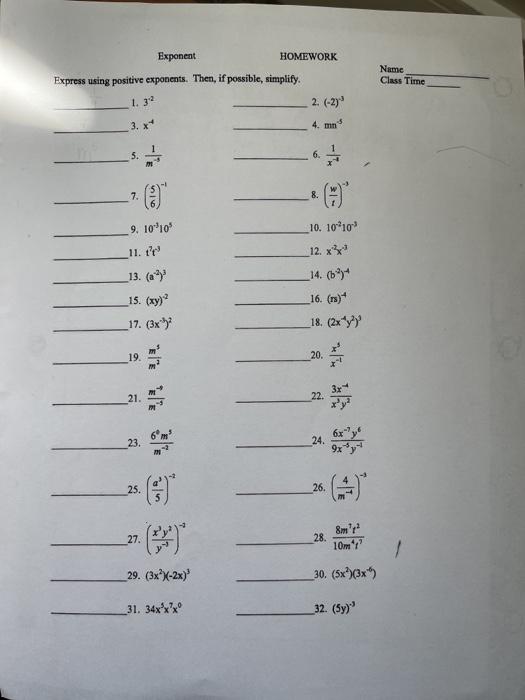 Exponent HOMEWORK
Name
Express using positive exponents. Then, if possible, simplify. Class Time
1. 3⁻² 2. (-2)⁻³
3. x⁻⁴ 4. mn⁻⁵
5. 1/m⁻⁵ 6. 1/x⁻⁸
7. (5/6)⁻¹ 8. (w/t)⁻³
9. 10⁻³10⁵ 10. 10⁻²10⁻³
12. x⁻²x⁻³
13. (a⁻²)³ 14. (b⁻²)⁻⁴
15. (xy)⁻² 16. (rs)⁻⁴
17. (3x⁻³)² 18. (2x⁻⁴y²)³
19. m⁵/m² 20. x⁵/x⁻¹
21. m⁻⁹/m⁻⁵ 22. 3x⁻⁴/x³y²
23. 6⁰m⁵/m⁻² 24. 6x⁻⁷y⁶/9x⁻⁵y⁻¹
25. (a³/5)⁻² 26. (4/m⁻⁴)⁻³
27. (x³y²/y⁻³)⁻² 28. 8m³t²/10m⁴t⁷
29. (3x²)(-2x)³ 30. (5x²)(3x⁻⁶)
31. 34x⁵x⁷x⁰ 32. (5y)⁻³